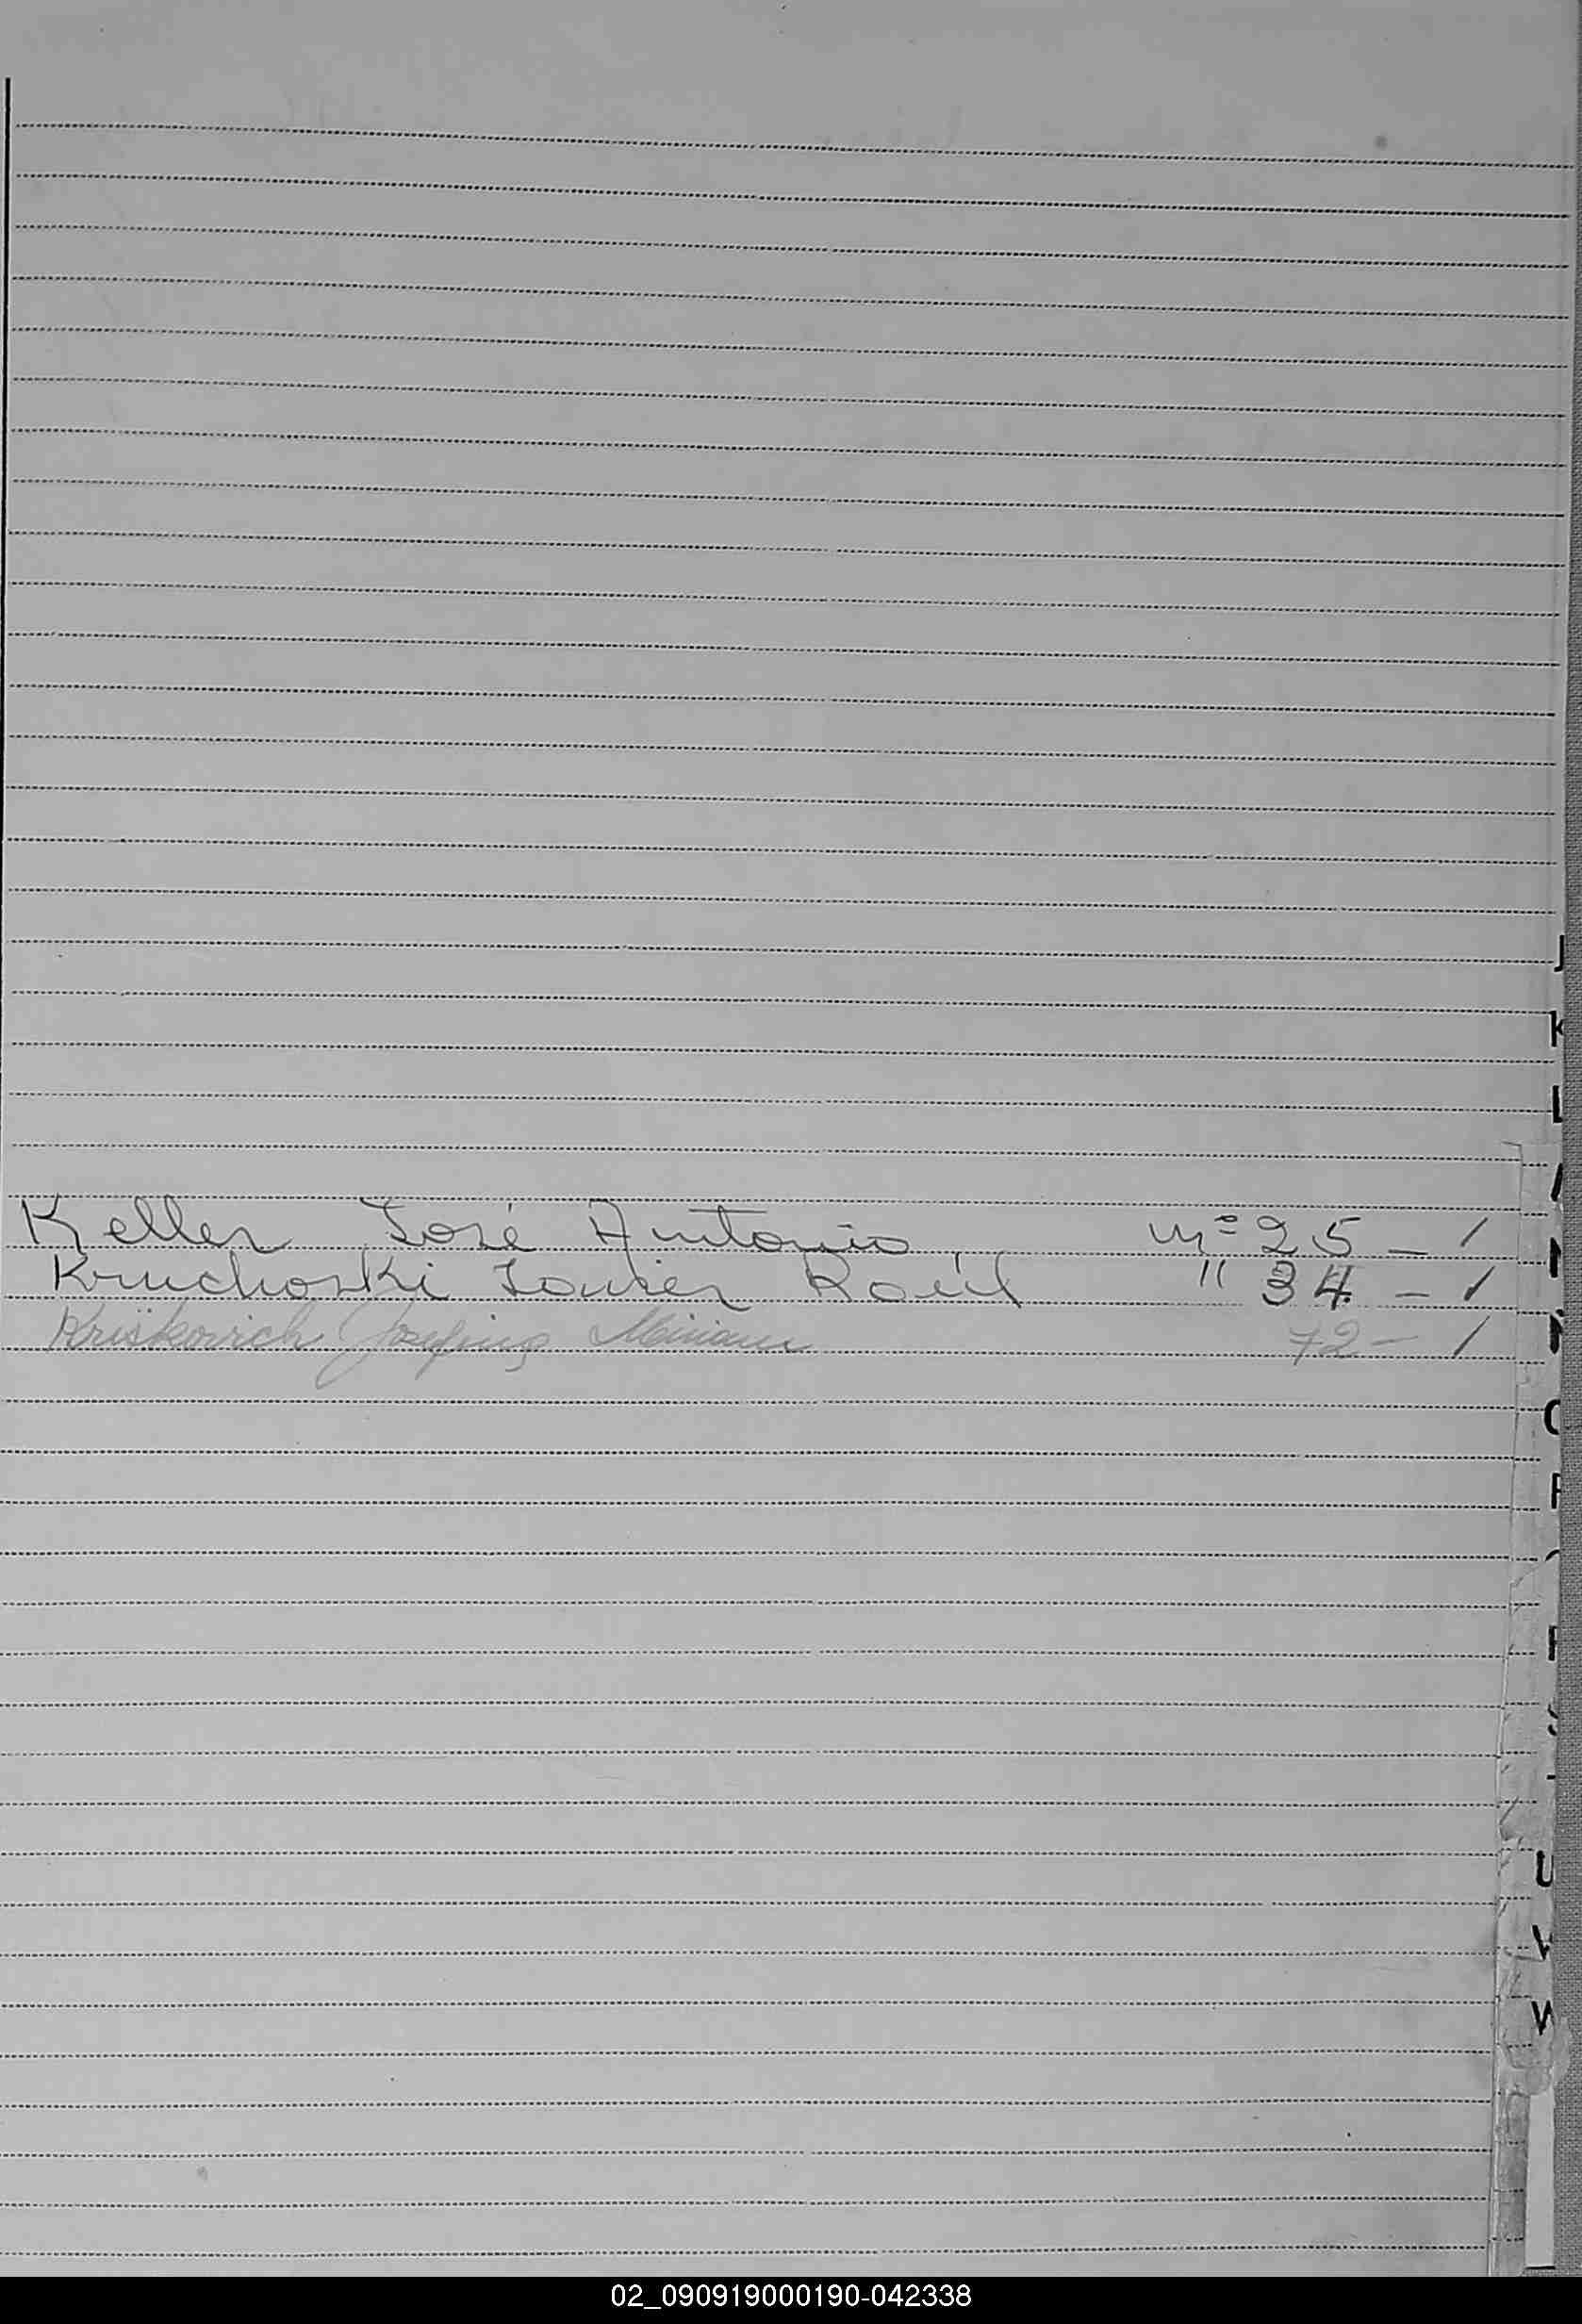 J
K
L
Keller José Antonio nº 25 - 1
Kruchoski Javier Raúl " 34 - 1
Kriskovich Josefina Miriam 72 - 1
N
Ñ
O
P
R
S
U
V
W
02_090919000190-042338